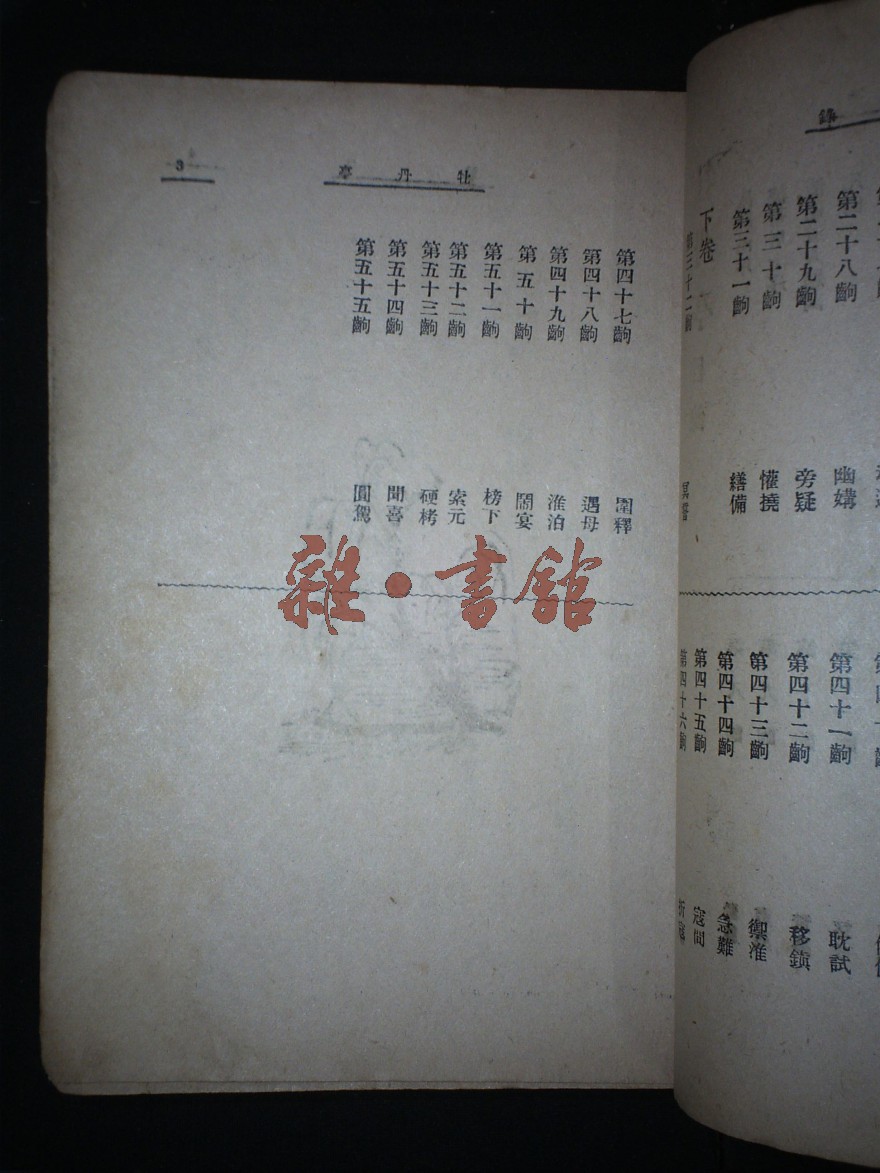 錄
第二十八齣 幽媾
第二十九齣 旁疑
第三十齣 懽撓
第三十一齣 繕備
下卷
第三十二齣 冥誓
第四十一齣 耽試
第四十二齣 移鎮
第四十三齣 禦淮
第四十四齣 急難
第四十五齣 寇間
第四十六齣 折寇
牡丹亭
3
第四十七齣 圍釋
第四十八齣 遇母
第四十九齣 淮泊
第五十齣 鬧宴
第五十一齣 榜下
第五十二齣 索元
第五十三齣 硬拷
第五十四齣 聞喜
第五十五齣 圓駕
雜·書館